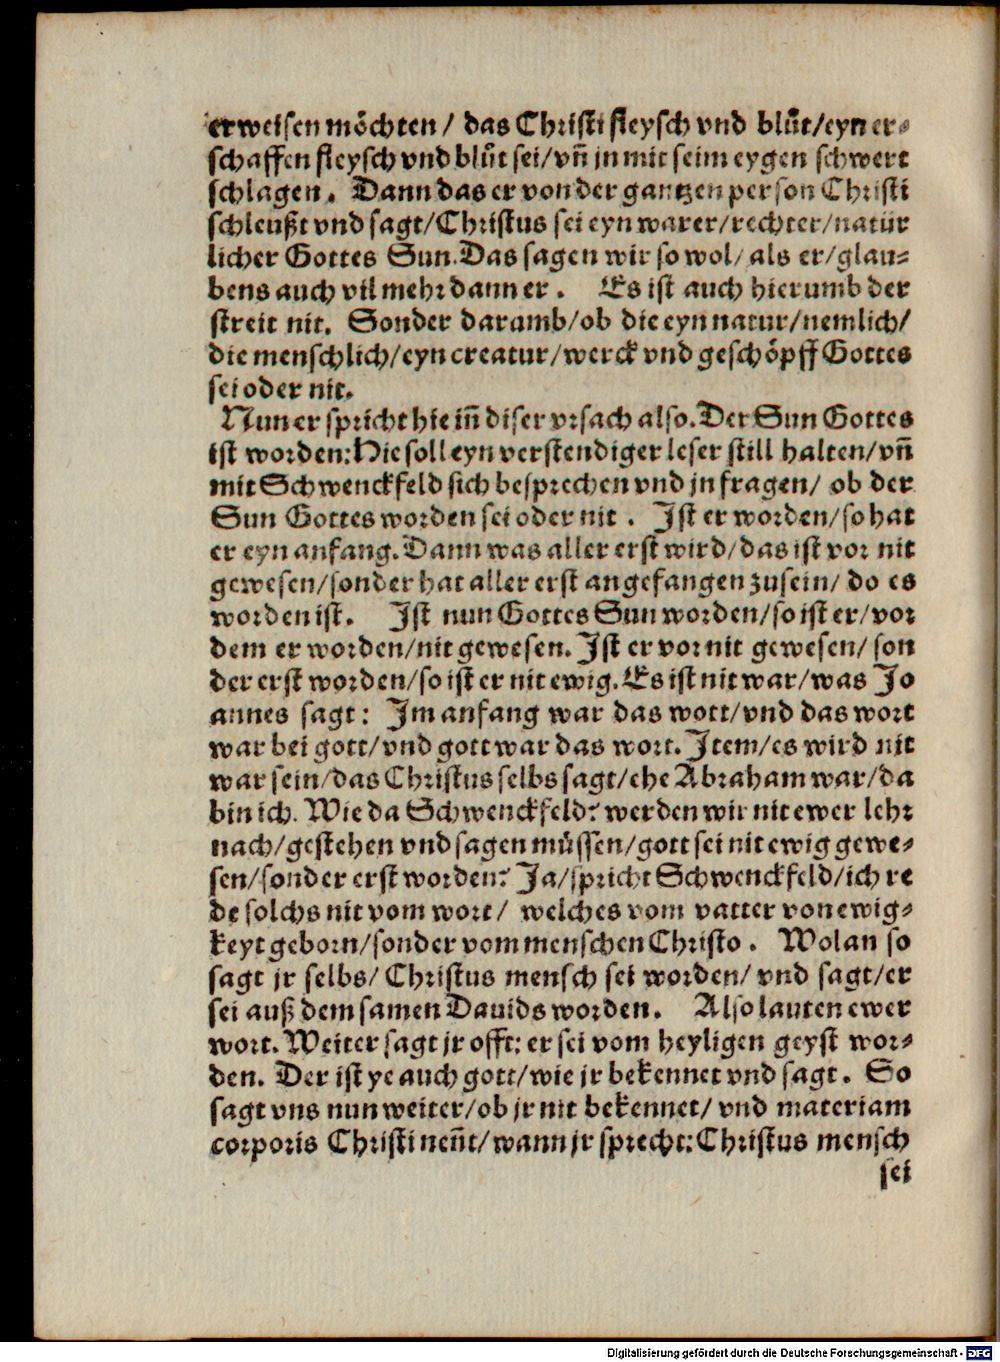 erweisen möchten / das Christi fleysch vnd blůt/eyn er⸗
schaffen fleysch vnd blůt sei/vñ jn mit seim eygen schwert
schlagen. Dann das er von der gantzen person Christi
schleußt vnd sagt/Christus sei eyn warer/rechter/natür
licher Gottes Sun. Das sagen wir so wol/als er/glau⸗
bens auch vil mehr dann er. Es ist auch hierumb der
streit nit. Sonder darumb/ob die eyn natur/nemlich/
die menschlich/eyn creatur/werck vnd geschöpff Gottes
sei oder nit.
Nun er spricht hie iñ diser vrsach also. Der Sun Gottes
ist worden: Hie soll eyn verstendiger leser still halten/vñ
mit Schwenckfeld sich besprechen vnd jn fragen/ ob der
Sun Gottes worden sei oder nit. Jst er worden/so hat
er eyn anfang. Dann was aller erst wird/das ist vor nit
gewesen/sonder hat aller erst angefangen zusein/ do es
worden ist. Jst nun Gottes Sun worden/so ist er/vor
dem er worden/nit gewesen. Jst er vor nit gewesen/ son
der erst worden/so ist er nit ewig. Es ist nit war/was Jo
annes sagt: Jm anfang war das wort/vnd das wort
war bei gott/vnd gott war das wort. Jtem/es wird nit
war sein/das Christus selbs sagt/ehe Abraham war/da
bin ich. Wie da Schwenckfeld? werden wir nit ewer lehr
nach/gestehen vnd sagen müssen/gott sei nit ewig gewe⸗
sen/sonder erst worden? Ja/spricht Schwenckfeld/ich re
de solchs nit vom wort/ welches vom vatter von ewig⸗
keyt geborn/sonder vom menschen Christo. Wolan so
sagt jr selbs/ Christus mensch sei worden/ vnd sagt/er
sei auß dem samen Dauids worden. Also lauten ewer
wort. Weiter sagt jr offt: er sei vom heyligen geyst wor⸗
den. Der ist ye auch gott/wie jr bekennet vnd sagt. So
sagt vns nun weiter/ob jr nit bekennet/ vnd materiam
corporis Christi neñt/wann jr sprecht: Christus mensch
sei
Digitalisierung gefördert durch die Deutsche Forschungsgemeinschaft - DFG